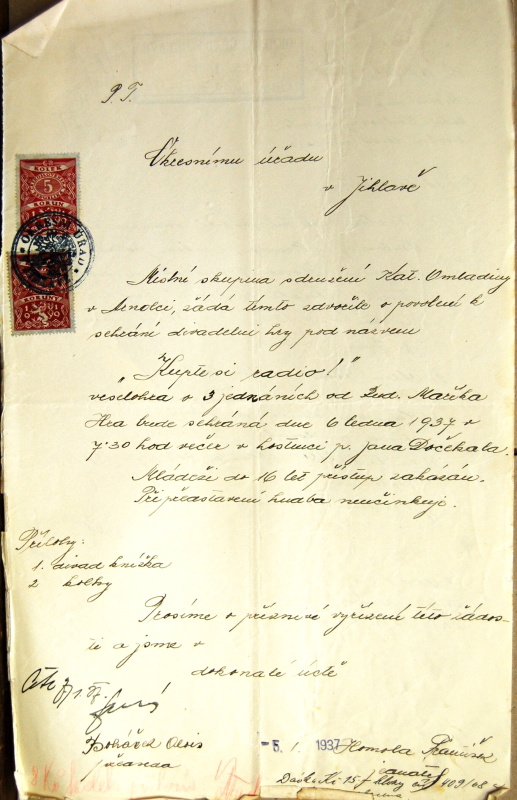 P. T.
Okresnímu úřadu
v Jihlavě
KOLEK
5
KORUN
OKRESNÍ ÚŘAD
Místní skupina sdružení Kat. Omladiny
v Arnolci, žádá tímto zdvořile o povolení k
sehrání divadelní hry pod názvem
„Kupte si radio!"
veselohra o 3 jednáních od Lud. Maříka
Hra bude sehrána dne 6 ledna 1937 v
7·30 hod večer v hostinci p. Jana Dočekala.
Mládeži do 16 let přístup zakázán.
Při představení hudba neučinkuje.
Přílohy:
1. divad knížka
2 kolky
Prosíme o příznivé vyřízení této žádos-
ti a jsme v
dokonalé úctě
- 5. I. 1937
Homola František
409/08